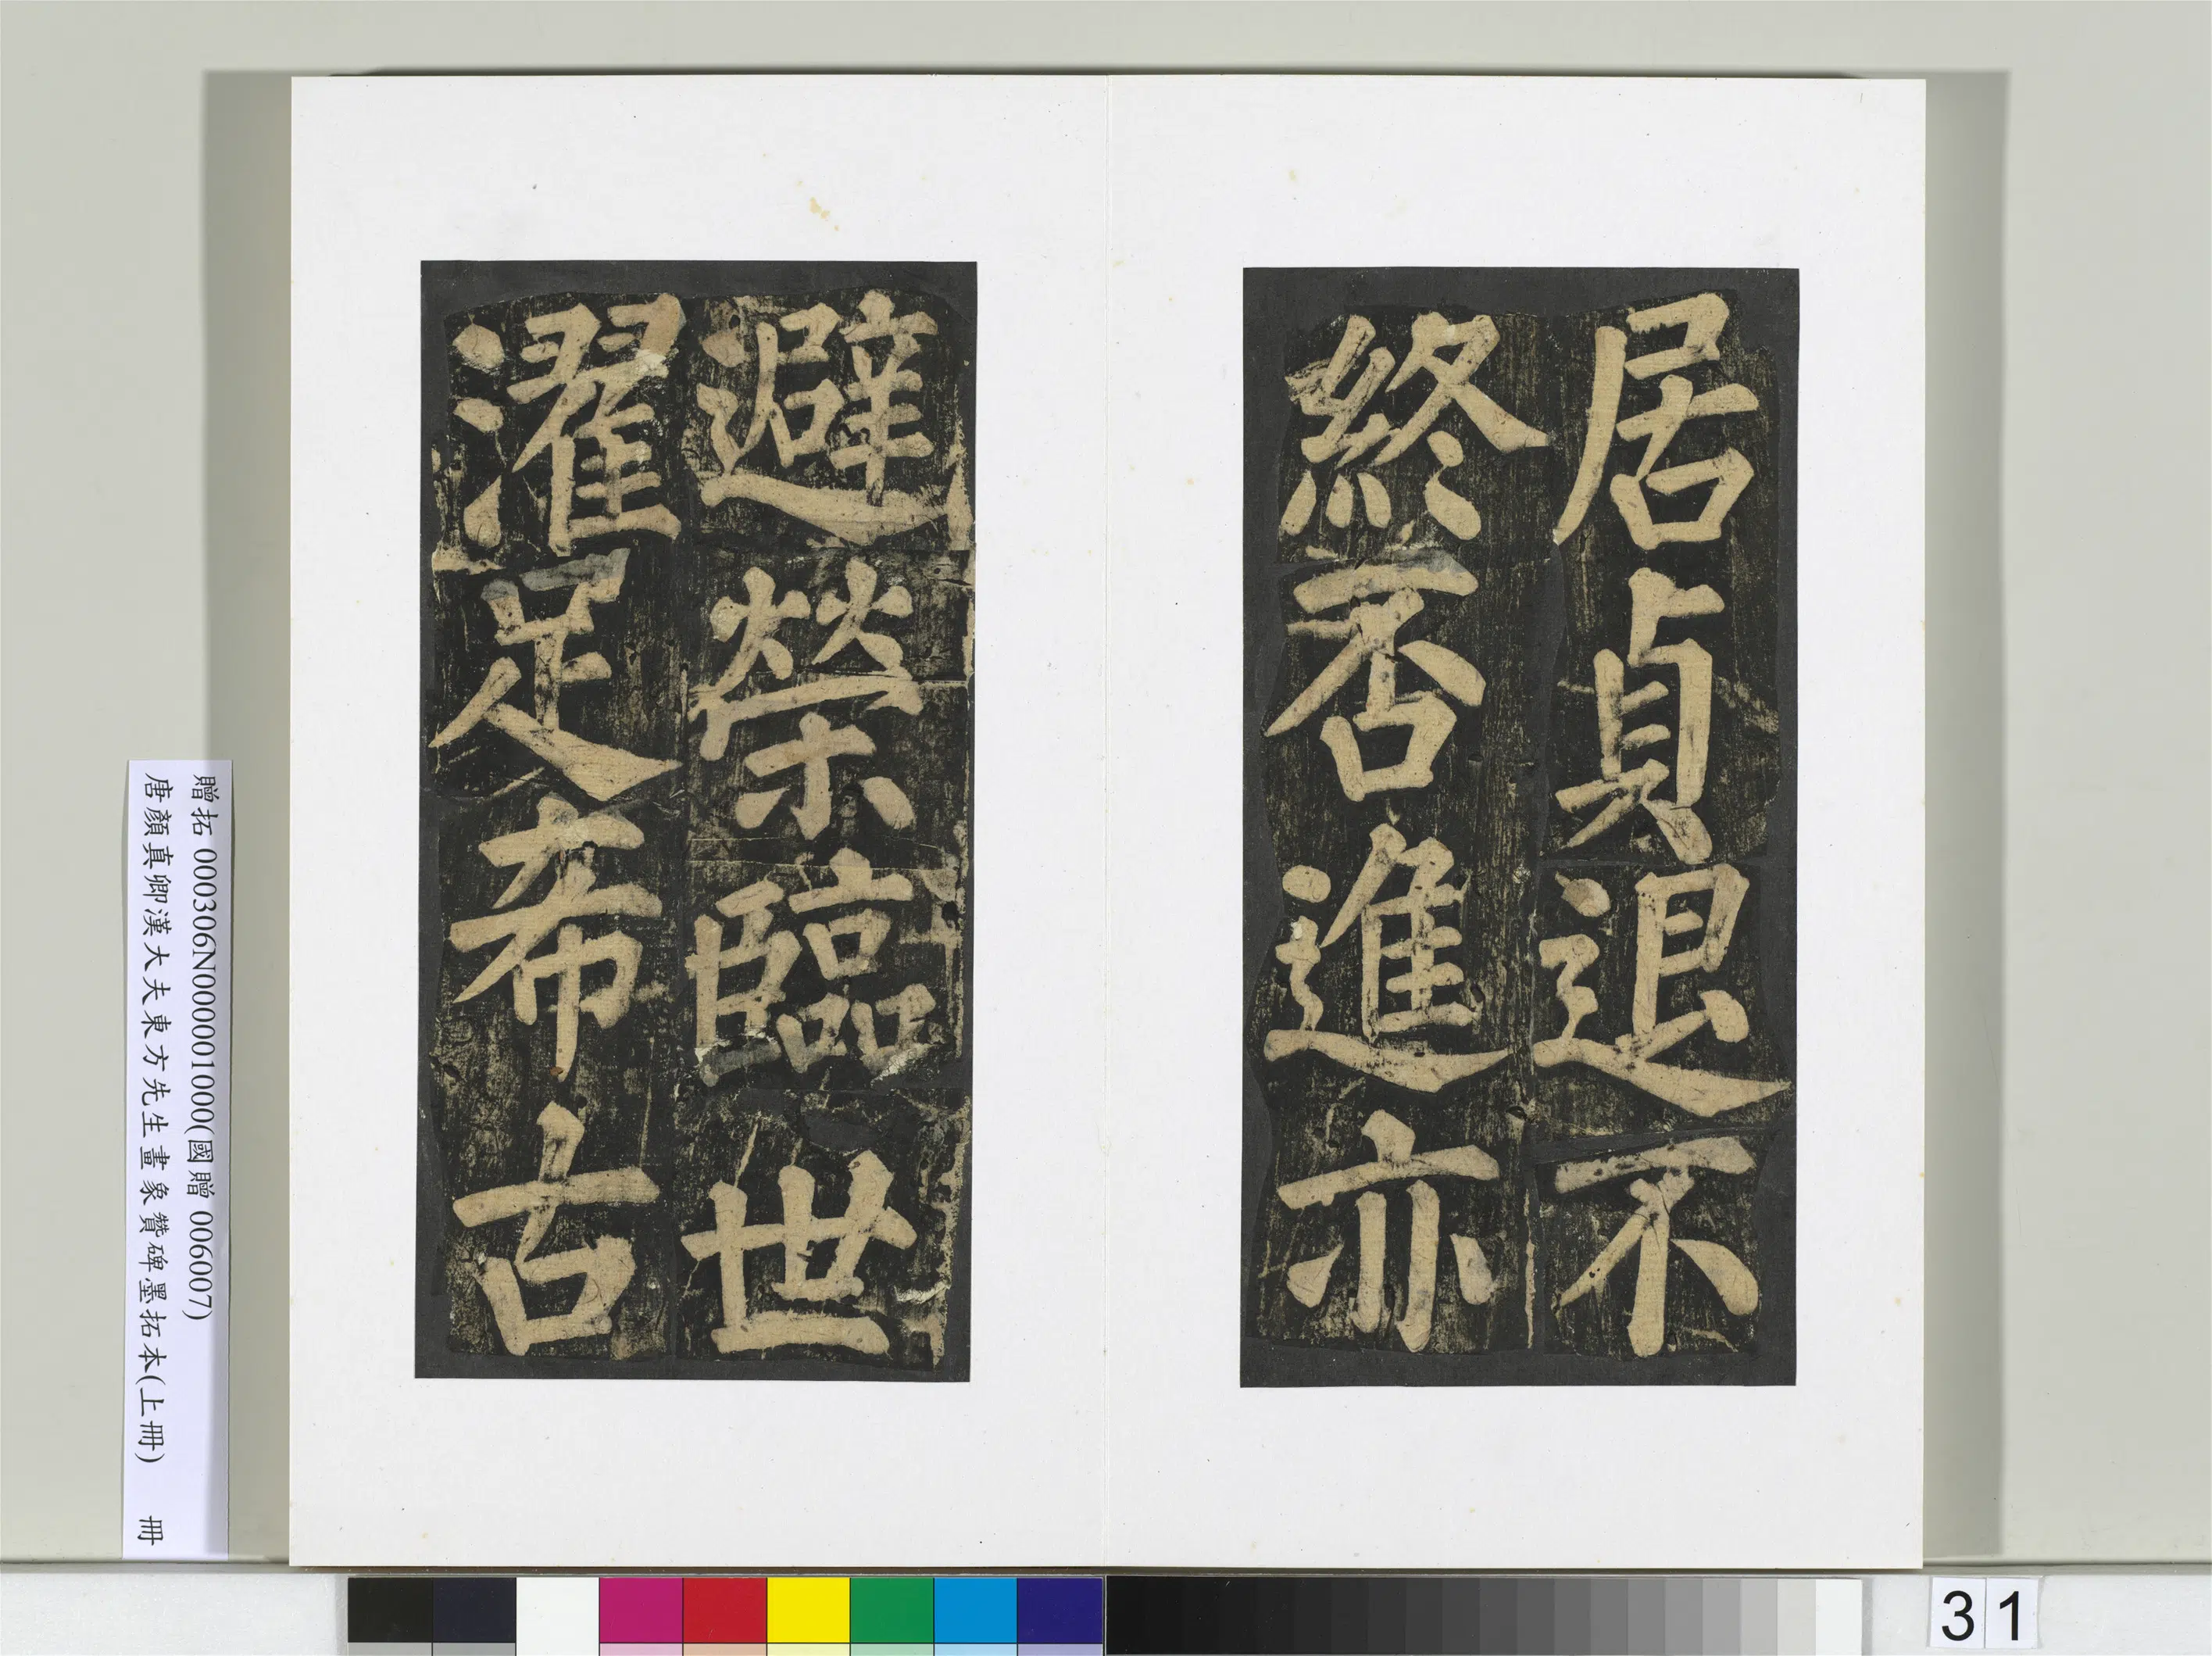 居貞退不
終否進亦
避榮臨世
濯足希古
贈拓 000306N000001000(國贈 006007)
唐顏真卿漢大夫東方先生畫象贊碑墨拓本(上冊) 冊
31